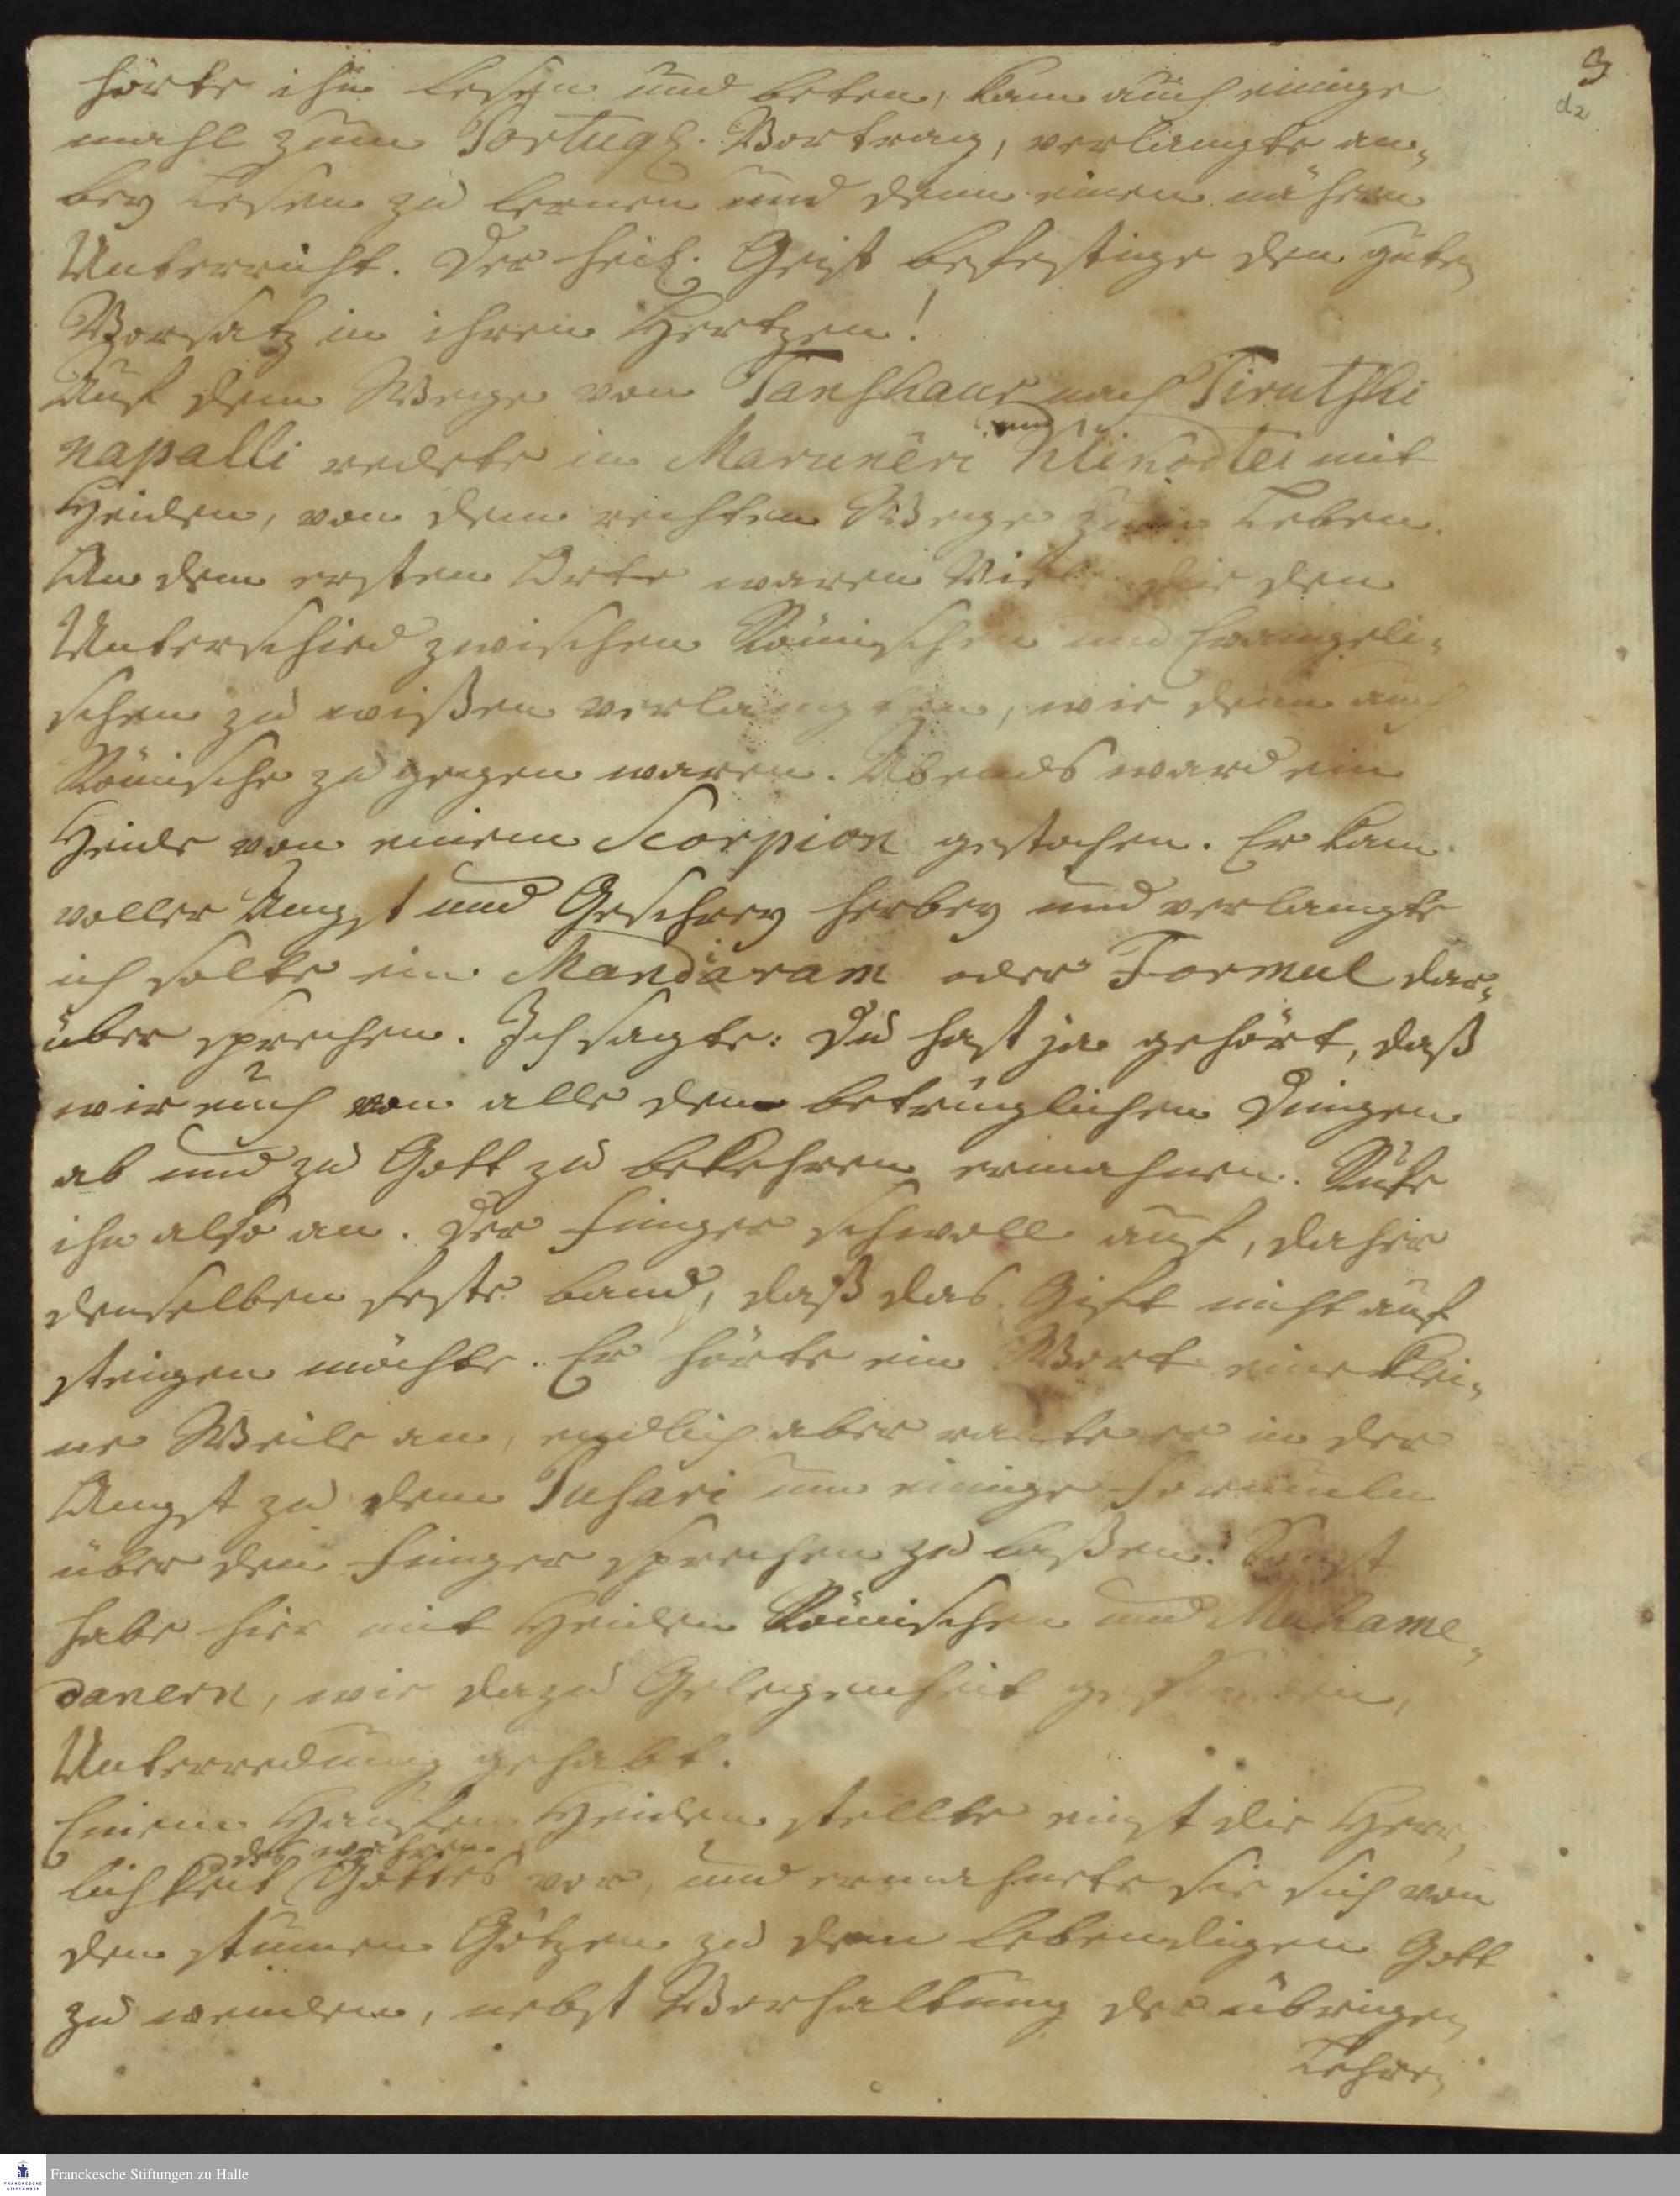 3
d2
hörte ihn lesen und beten, kam auch einige
mahl zum Portugs. Vortrag, verlangte an-
bey Lesen zu lernen und denn einen nähern
Unterricht. Der heil. Geist befestige den guten
Vorsatz in ihren Hertzen!
Auf dem Wege von Tanshaur nach Tirutshi
napalli redete in Maruneri und mit
Heiden, von dem rechten Wege zum Leben.
An dem ersten Orte waren Viele die den
Unterschied zwischen Römischen und Evangeli-
schen zu wißen verlangten, wie denn auch
Römische zu gegen waren. Abends ward ein
Heide von einem Scorpion gestochen. Er kam
voller Angst und Geschrey herbey und verlangte
ich solte ein Mandaram oder Formul dar-
über sprechen. Ich sagte: Du hast ja gehört, daß
wir euch von alle den betrüglichen Dingen
ab und zu Gott zu bekehren ermahnen. Rufe
ihn also an. Der Finger schwoll auf, daher
denselben feste band, daß das Gift nicht auf
steigen möchte. Er hörte ein Wort eine klei-
ne Weile an, endlich aber rante er in der
Angst zu dem Pusari um einige Formuln
über den Finger sprechen zu laßen. Sonst
habe hier mit Heiden Römischen und Muhame-
danern, wie dazu Gelegenheit gefunden,
Unterredung gehabt.
Einem Haufen Heiden stellte einst die Herr-
lichkeit des wahren Gottes vor, und ermahnete sie sich von
den stummen Götzen zu dem lebendigen Gott
zu wenden, nebst Vorhaltung der übrigen
Lehren
Franckesche Stiftungen zu Halle